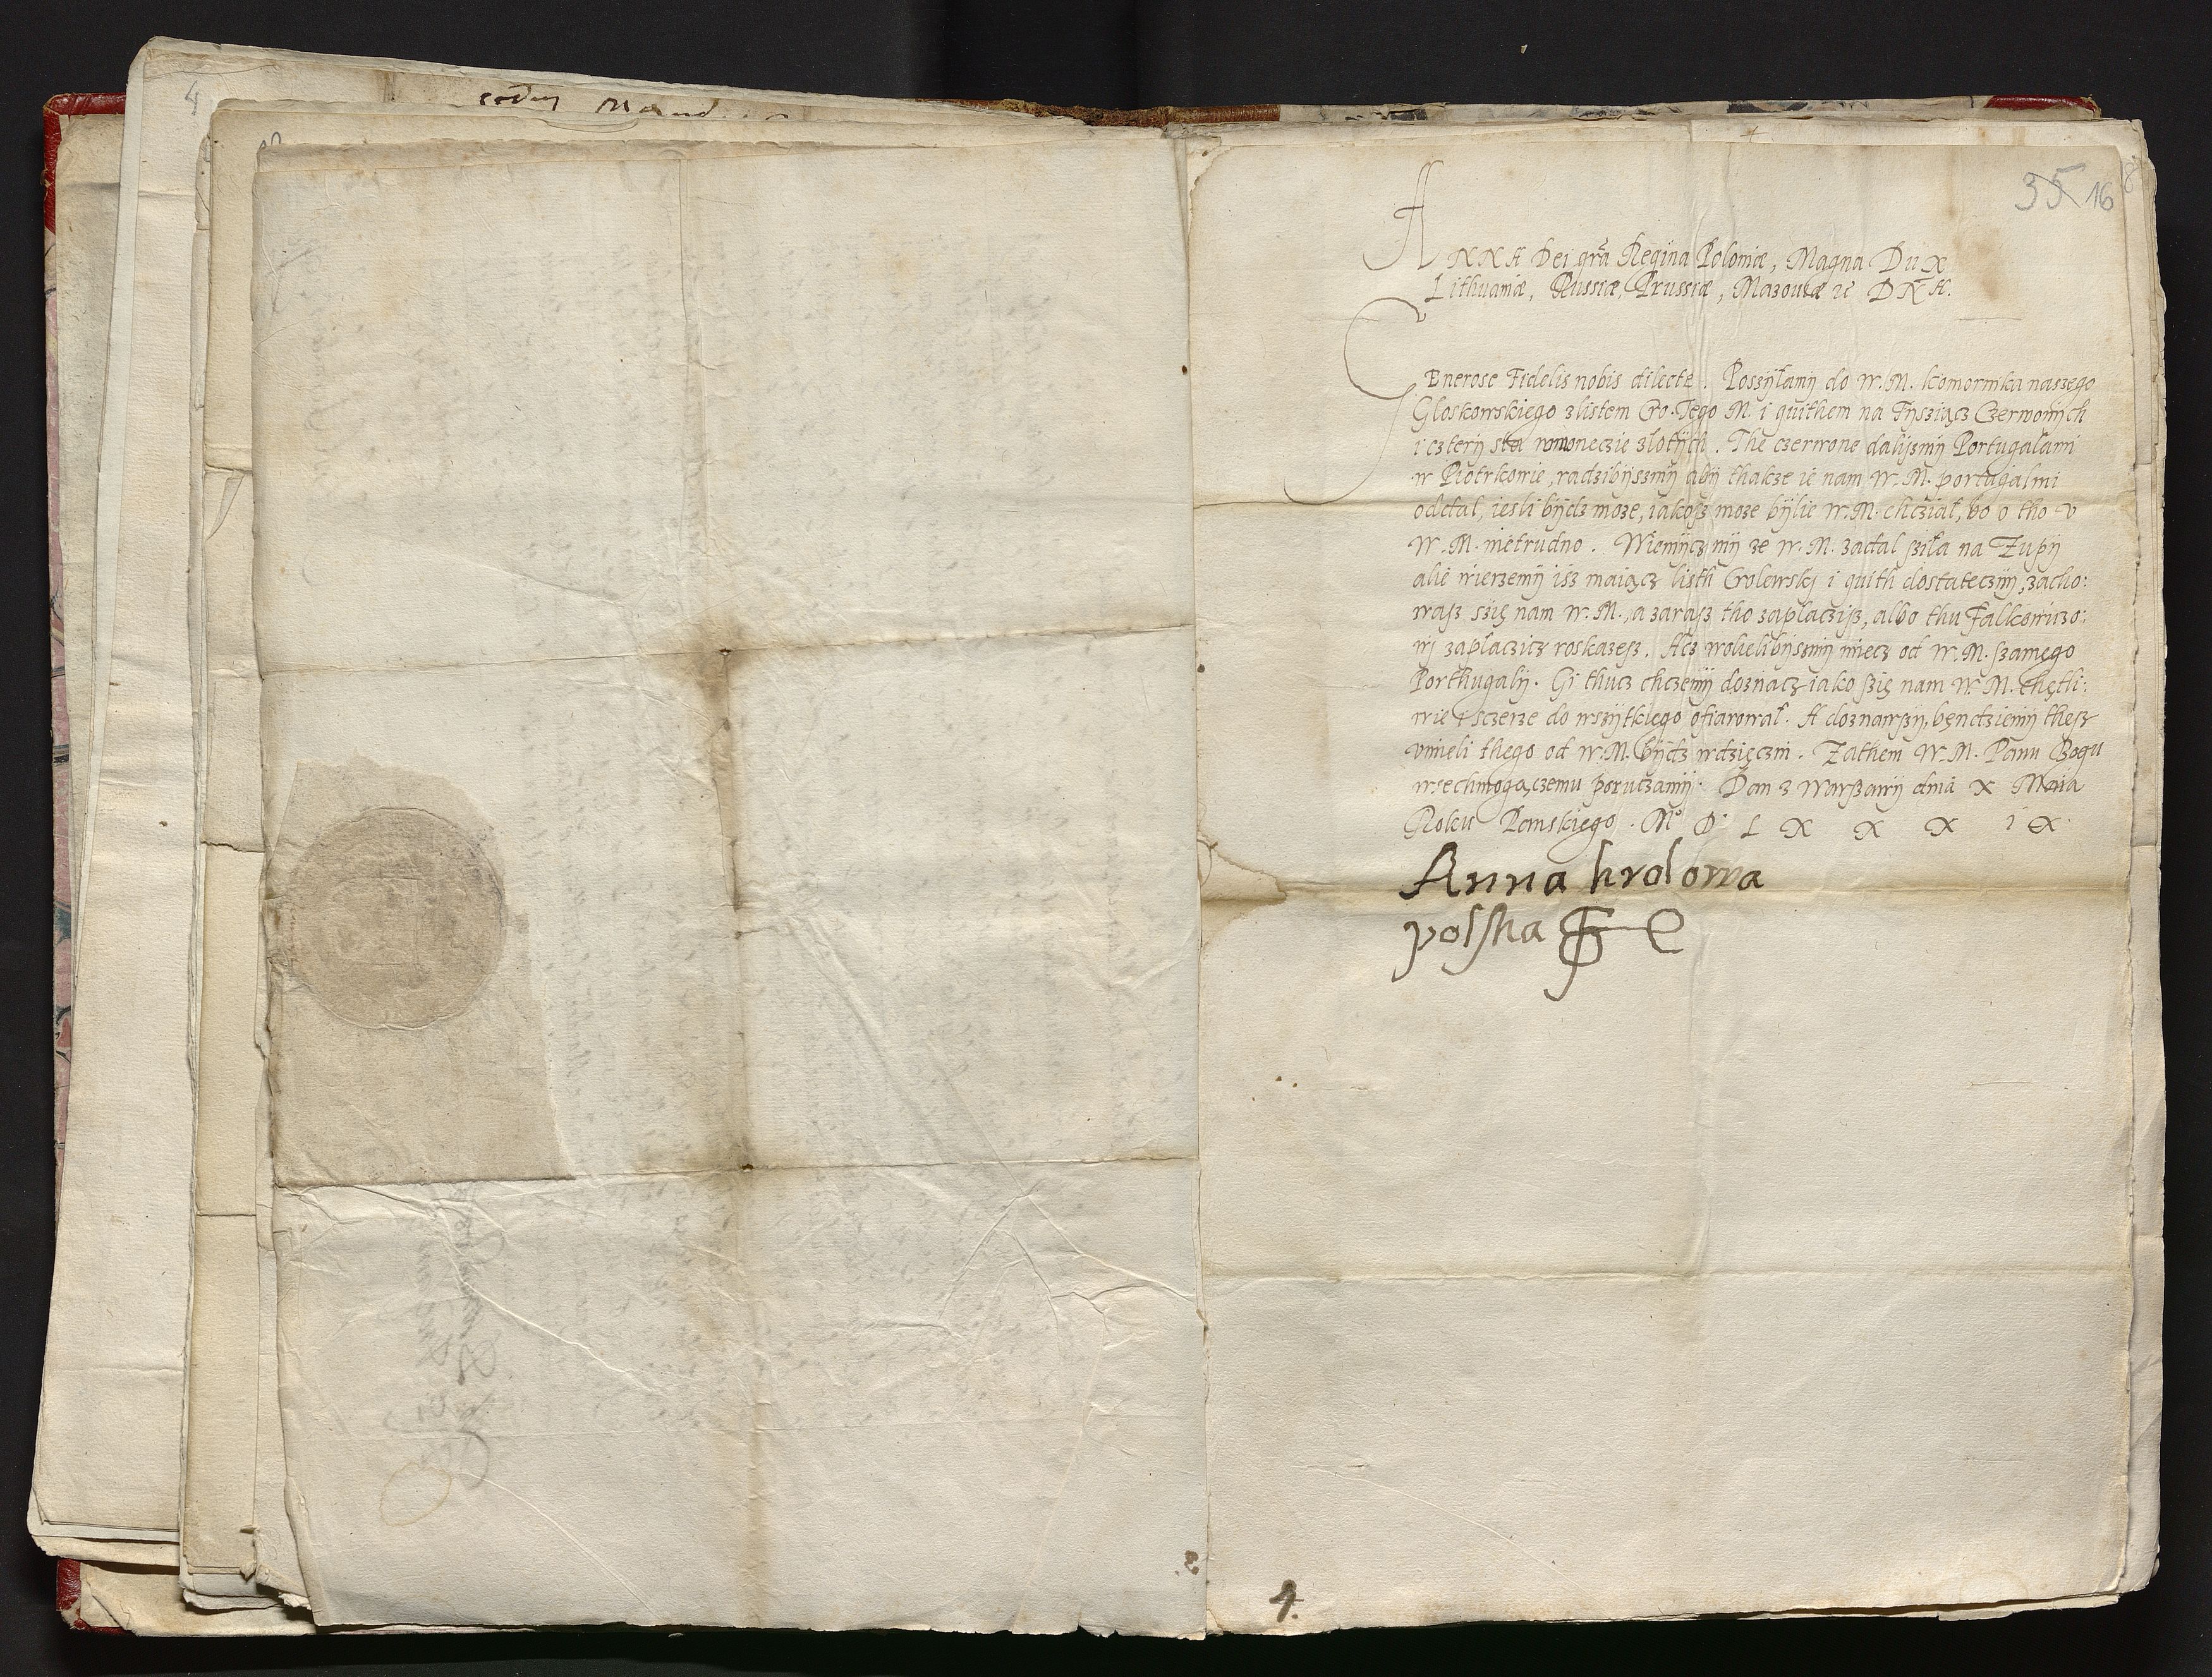 4
35 16
ANNA Dei gra Regina Poloniæ, Magna Dux
Lithuaniæ, Russiæ, Prussiæ, Mazouiæ DNA.
GEnerose Fidelis nobis dilecte. Poszÿlamÿ do W.M. komornika naszego
Gloskowskiego z listem Cro. Jego M. i quithem na Tÿsziącz Czerwonÿch
i czterÿ sta w moneczie zlotÿch. The czerwone dalÿszmÿ Portugalami
w Piotrkowie, radzibÿszmÿ abÿ thakze ie nam W.M. portugalmi
oddal, iesli bÿdz moze, iakosz moze bÿlie W.M. chcział, bo o tho v
W.M. nietrudno. Wiemÿcz mÿ ze W.M. zadal sziła na Zupÿ
alie wierzemÿ isz maiącz listh Crolewskj i quith dostatecznÿ, zacho:
wasz szię nam W.M., a zarasz tho zaplaczisz, albo thu Falkowiczo:
wj zaplaczicz roskazesz. Acz wolielibÿszmÿ miecz od W.M. szamego
Porthugalÿ. Gi thucz chczemÿ doznacz iako szię nam W.M. chętli:
wie i sczerze do wszÿtkiego ofiarował. A doznawszÿ, bęndziemÿ thesz
vmieli thego od W.M. bÿdz wdzięczni. Zathem W.M. Panu Bogu
wsechmogączemu poruczamÿ. Dan z Warszawÿ dnia X Maia
Roku Panskiego. Mº D. L X X X I X.
Anna krolowa
polska
4.